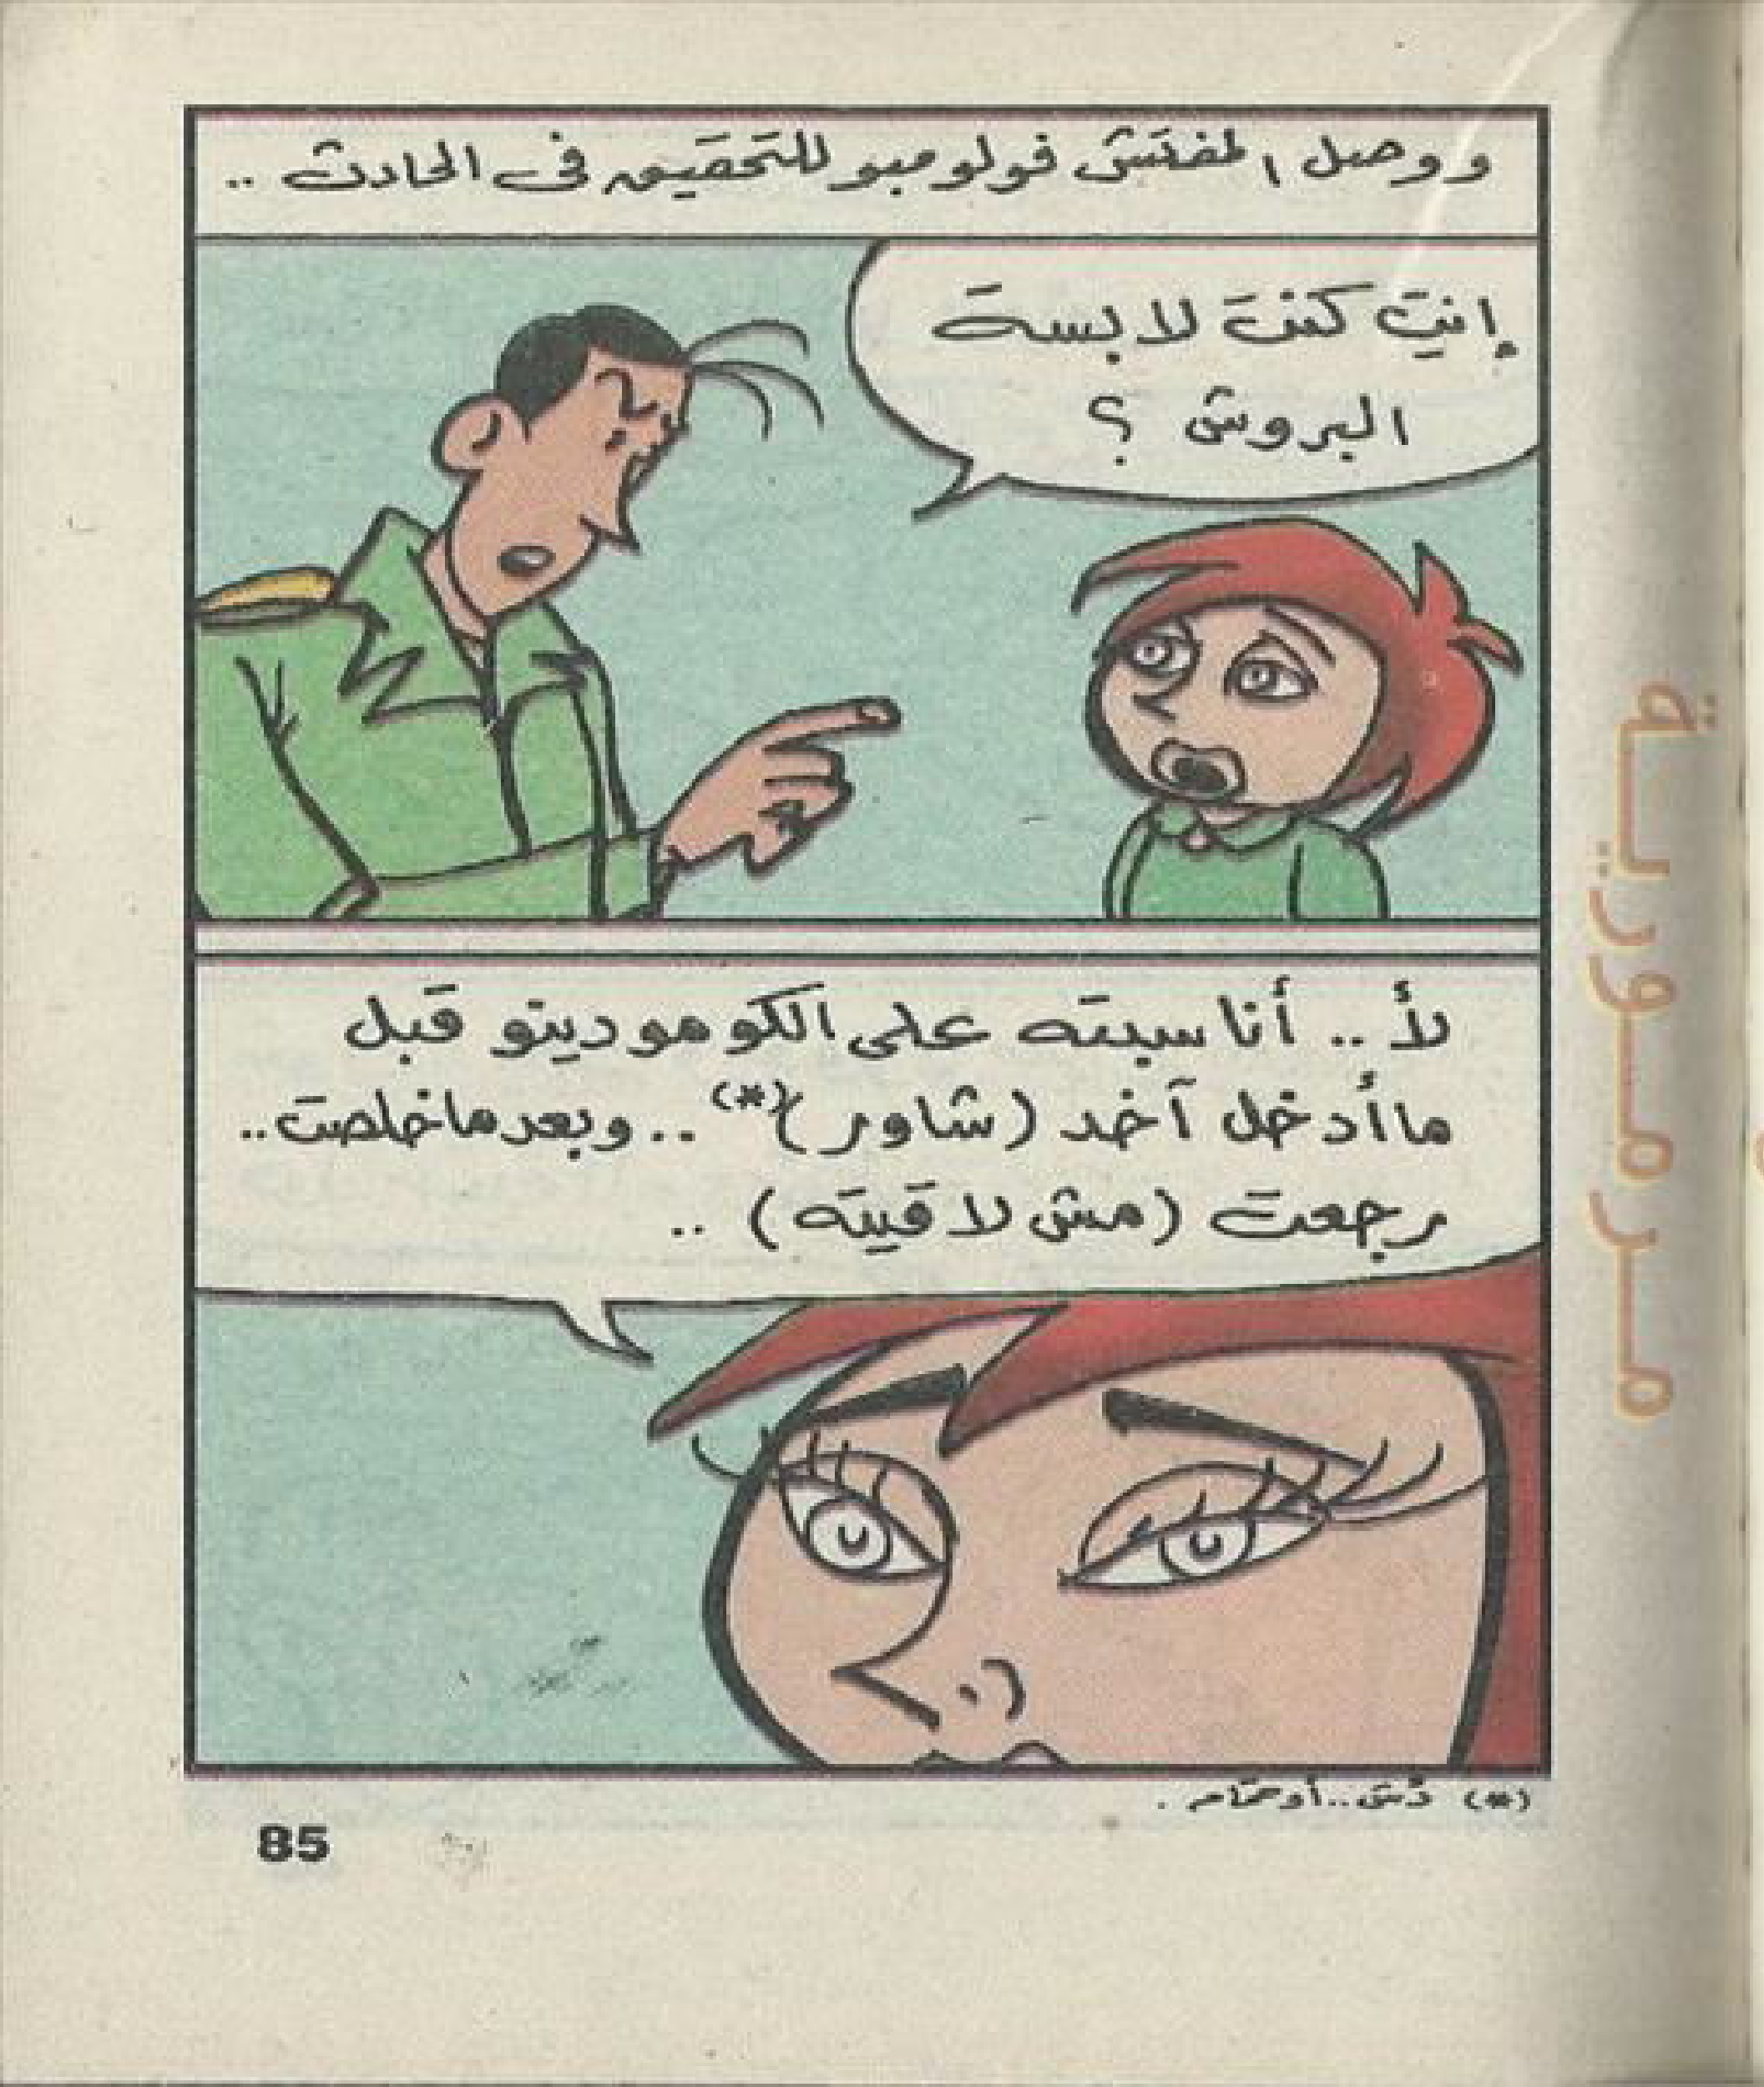 ووصل المفتش فولومبو للتحقيق فى الحادث ..
إنتِ كنتِ لابسة
البروش ؟
لأ .. أنا سيبته على الكومودينو قبل
ما أدخل آخد (شاور)(*) .. وبعد ما خلصت ..
رجعت (مش لاقيته) ..
(*) دُش .. أو حمّام .
85
مرمورية